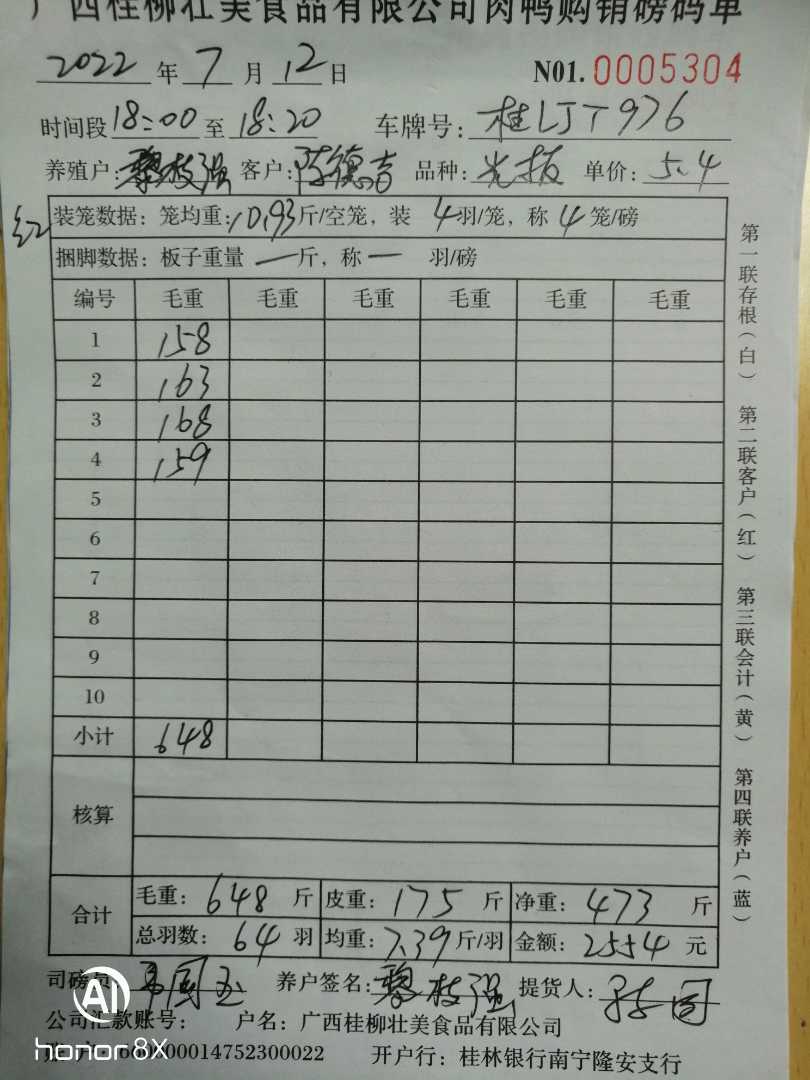 广西桂柳壮美食品有限公司肉鸭购销磅码单
2022 年 7 月 12 日 N01. 0005304
时间段 18:00 至 18:20 车牌号: 桂LJT976
养殖户: 黎枝强 客户: 陈德吉 品种: 光扳 单价: 5.4
红
装笼数据: 笼均重: 10.93 斤/空笼, 装 4 羽/笼, 称 4 笼/磅
捆脚数据: 板子重量 — 斤, 称 — 羽/磅
编号 毛重 毛重 毛重 毛重 毛重 毛重
1 158
2 163
3 168
4 159
5
6
7
8
9
10
小计 648
核算
合计 毛重: 648 斤 皮重: 175 斤 净重: 473 斤
总羽数: 64 羽 均重: 7.39 斤/羽 金额: 2554 元
司磅员 养户签名: 黎枝强 提货人:
公司汇款账号: 户名: 广西桂柳壮美食品有限公司
开户行: 桂林银行南宁隆安支行
第一联存根(白) 第二联客户(红) 第三联会计(黄) 第四联养户(蓝)
AI
honor 8X